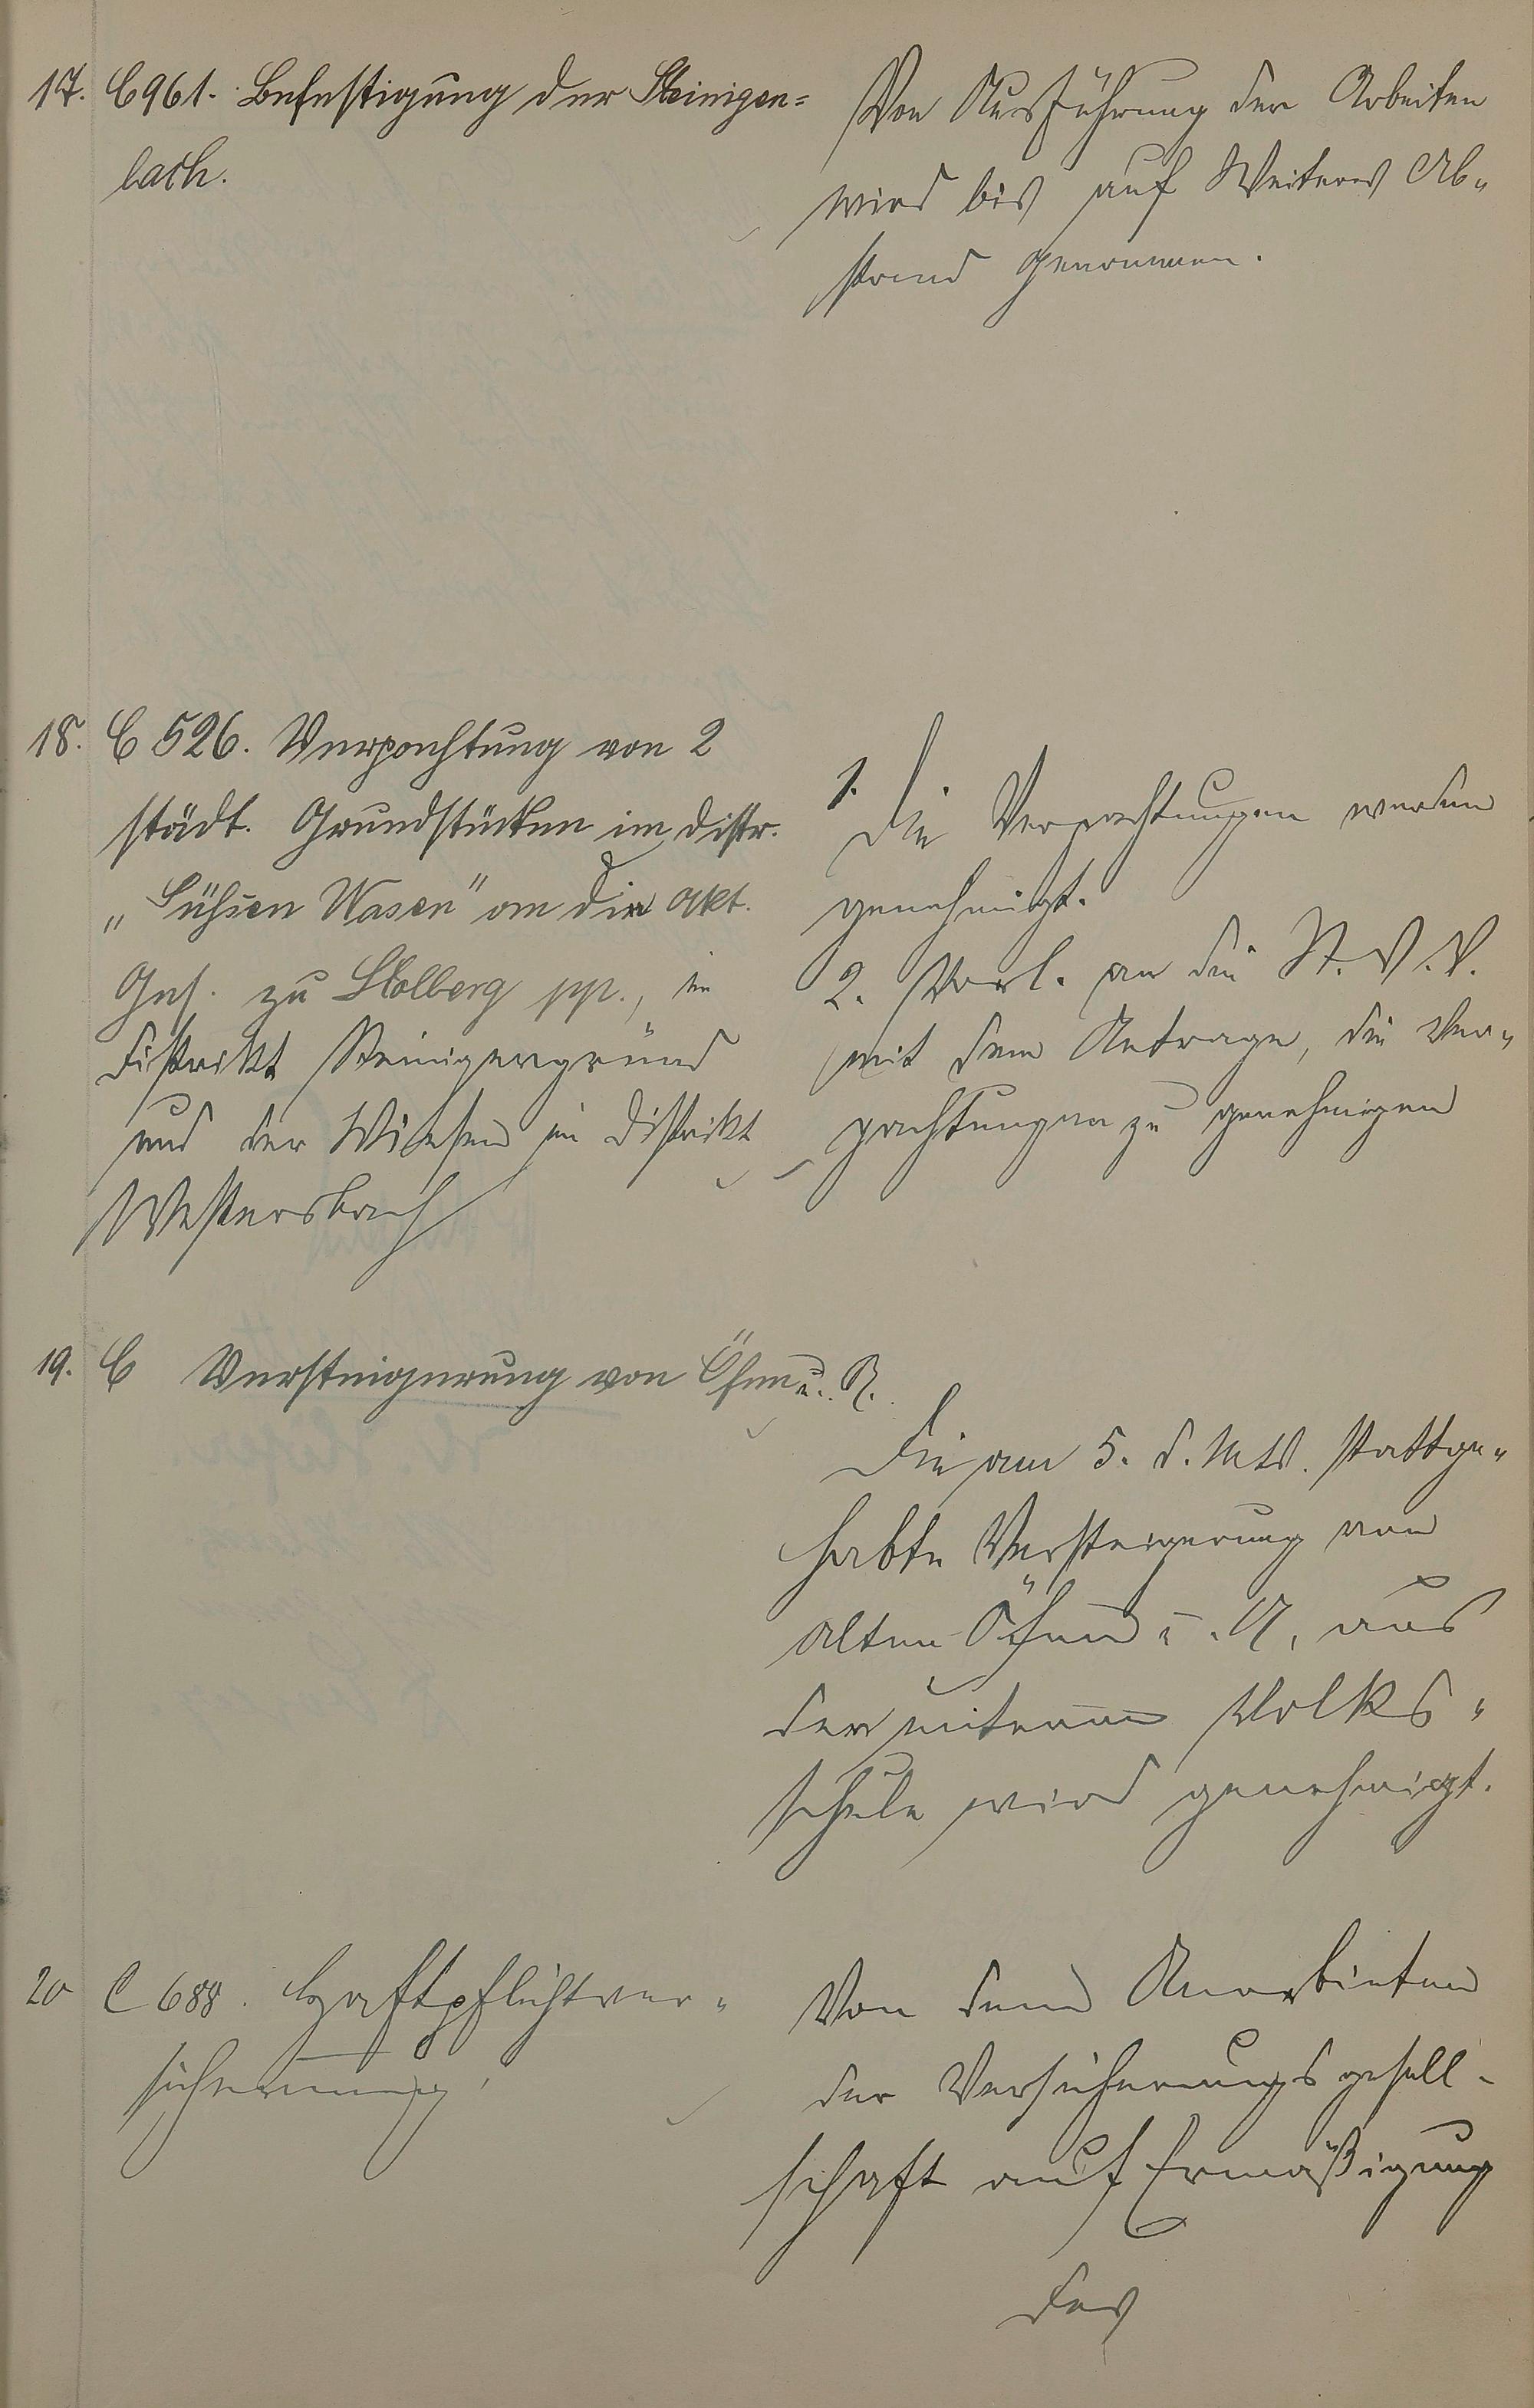 17. C 961. Befestigung der Steinigen=
bach.
Von Ausführung der Arbeiten
wird bis auf Weiteres Ab„
stand genommen.
18. C 526. Verpachtung von 2
städt. Grundstücken im Distr.
„Sühsen Wasen" an die Akt.
Ges. zu Stolberg pp., im
Distrikt Steinigergrund
und der Wiesen in Distrikt
Westersbach
1. Die Verpachtungen werden
genehmigt.
2. Vorl. an die St. V. V.
mit dem Antrage, die Ver„
pachtungen zu genehmigen
19. C Versteigerung von Öfen u. A.
Die am 5. d. Mts. stattge„
habte Versteigerung von
alten Öfen u. A. aus
der unteren Volks„
schule wird genehmigt.
20 C 688. Haftpflichtver„
sicherung.
Von dem Anerbieten
der Versicherungsgesell-
schaft auf Ermäßigung
des